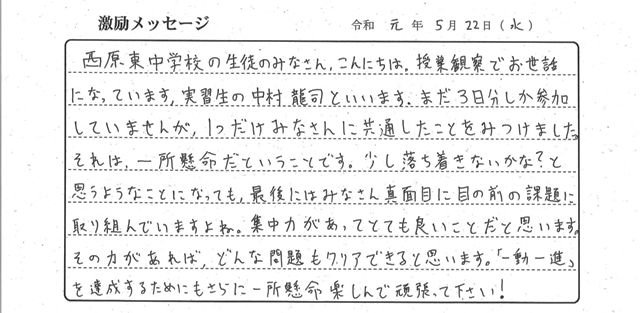 激励メッセージ 令和 元 年 5 月 22 日 ( 水 )
西原東中学校の生徒のみなさん、こんにちは。授業観察でお世話
になっています、実習生の中村 龍司といいます。まだ3日分しか参加
していませんが、1つだけみなさんに共通したことをみつけました。
それは、一所懸命だということです。少し落ち着きないかな?と
思うようなことになっても、最後にはみなさん真面目に目の前の課題に
取り組んでいますよね。集中力があってとても良いことだと思います。
その力があれば、どんな問題もクリアできると思います。「一動一進」
を達成するためにもさらに一所懸命楽しんで頑張って下さい!